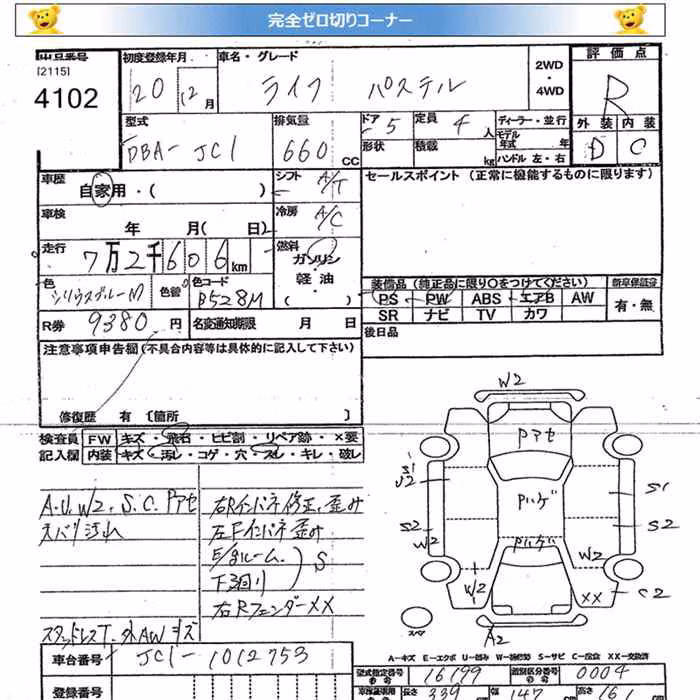 完全ゼロ切りコーナー
出品番号 初度登録年月 車名・グレード 2WD・4WD 評価点
[2115]
4102 20 12月 ライフ パステル R
型式 排気量 ドア 5 定員 4人 ディーラー・並行 外装 内装
DBA-JC1 660cc 形状 積載 kg モデル年式 年 D C
ハンドル 左・右
車歴 自家用・( ) シフト A/T セールスポイント(正常に機能するものに限ります)
車検 年 月( 日) 冷房 A/C
走行 7万2千606km 燃料 ガソリン・軽油
色 シリウスブルーM 色替 色コード B528M 装備品(純正品に限り○をつけてください) 新車保証書
PS PW ABS エアB AW 有・無
SR ナビ TV カワ
R券 9380円 名変通知期限 月 日 後日品
注意事項申告欄(不具合内容等は具体的に記入して下さい)
修復歴 有 [箇所 ]
検査員 FW キズ・飛石・ヒビ割・リペア跡・×要
記入欄 内装 キズ・汚レ・コゲ・穴・スレ・キレ・破レ
A.U.W2.S.C.Pアセ
スバリ汚れ
右Rインパネ修正、歪み
左Fインパネ歪み
E/gルーム.
下回り
S
右RフェンダーXX
スタッドレスT.外AWキズ
W2
Pアセ
S1
U2
Pハゲ
S1
S2
W2
Pハゲ
S2
W2
W2
XX
C2
スペア
A2
A-キズ E-エクボ U-凹み W-補修跡 S-サビ C-腐食 XX-交換済
車台番号 JC1-1012753
型式指定番号 16199 類別区分番号 0004
登録番号 長さ 339 幅 147 高さ 161